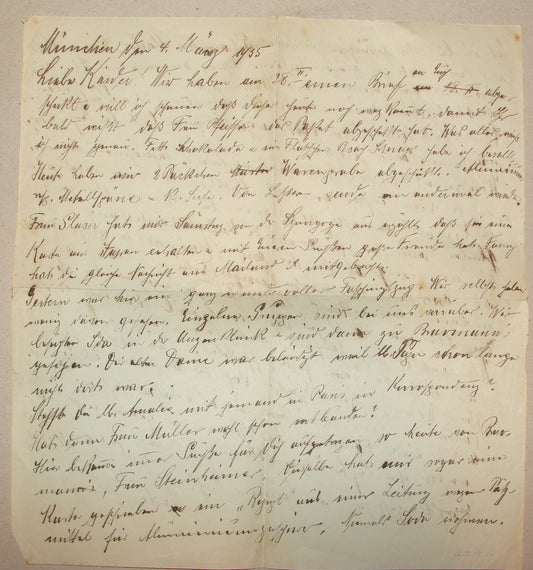 München den 4. März 1935
Liebe Kinder! Wir haben am 28. II einen Brief an Euch abge-
schickt & will ich schauen daß dieser heute noch weg kommt, damit Ihr
bald wißt daß Frau Pfeiffer das Packet abgeschickt hat. Was alles weiß
ich nicht genau. Fett Schokolade & ein Fläschchen habe ich bestellt
Heute haben wir 2 Päckchen Warenprobe abgeschickt. Aluminium
& Seife. Von Seife sende ein andermal mehr.
Frau hat mir Samstag von der Synagoge aus erzählt daß sie eine
Karte von erhalten & mit Eueren Grüßen große Freude hatte. Fanny
hat die gleiche Nachricht aus Mailand mitgebracht.
Gestern war hier ein ganz wundervoller Faschingszug. Wir selbst haben
wenig davon gesehen. Einzelne Gruppen sind bei uns vorüber. Wir
besuchten Ida in der Ungererklinik & sind dann zu Baumann
gegangen. Die alte Dame war beleidigt weil schon lange
nicht dort war.
Steht Du lb. Amalie mit jemand in Paris in Korrespondenz?
Hat denn Frau Müller wohl schon entbunden?
Hier bekomme immer Grüße für Dich aufgetragen so heute von
Frau Steinheimer. Dieselbe hat mir sogar eine
Karte geschrieben ein "Rezept aus einer Zeitung wegen Putz-
mittel für Aluminiumgeschirr. Niemals Soda nehmen.